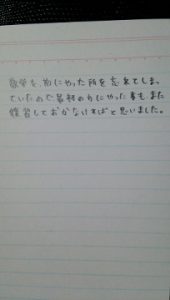 数学を、初にやった所を忘れてしまっ
ていたので最初のうにやった事も、また
復習しておかなければと思いました。